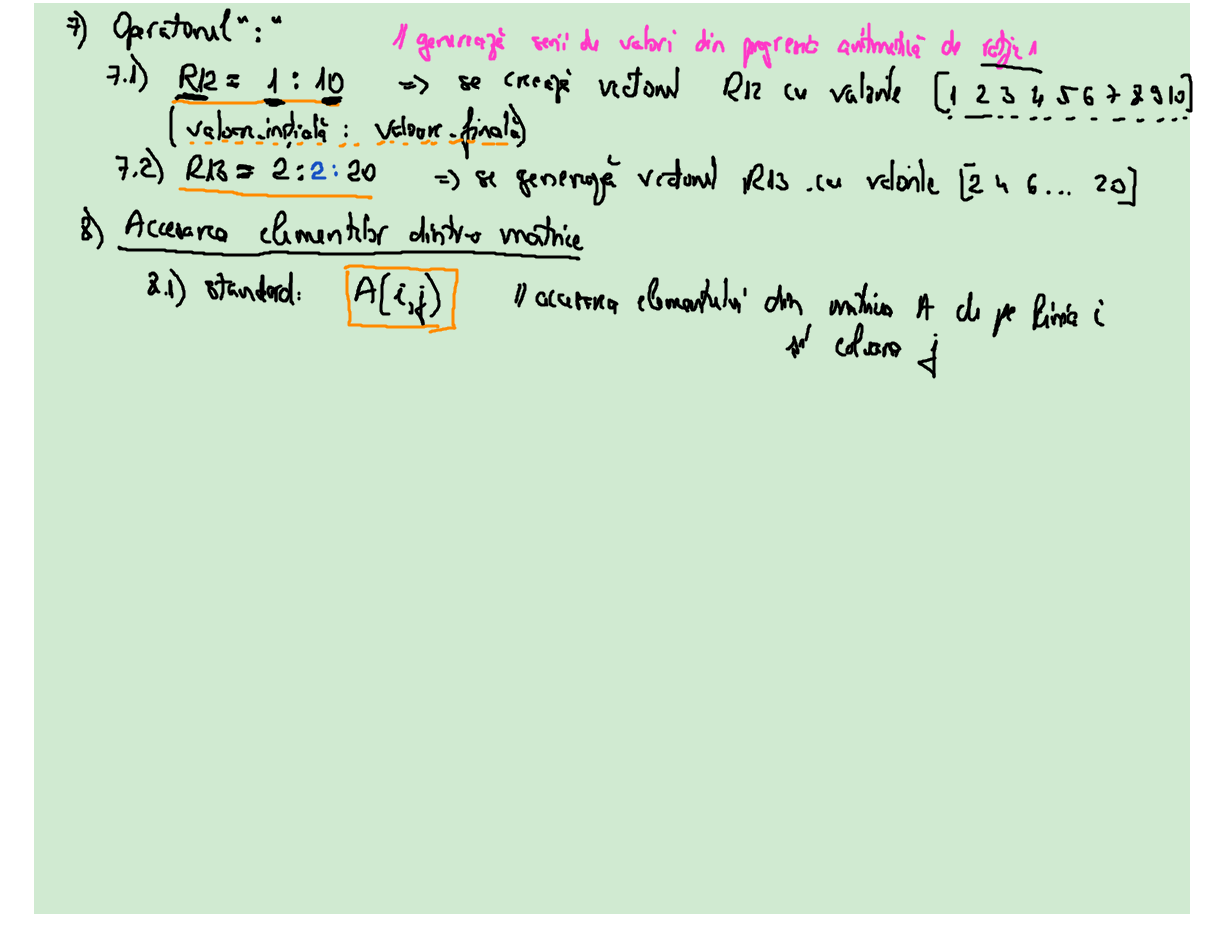 7) Operatorul ":" // generează serii de valori din progresia aritmetică de rație 1
7.1) R12 = 1 : 10 => se creează vectorul R12 cu valorile [1 2 3 4 5 6 7 8 9 10]
(valoare_inițială : valoare_finală)
7.2) R13 = 2:2:20 => se generează vectorul R13 cu valorile [2 4 6 ... 20]
8) Accesarea elementelor dintr-o matrice
8.1) standard: A(i,j) // accesarea elementului din matricea A de pe linia i
și coloana j